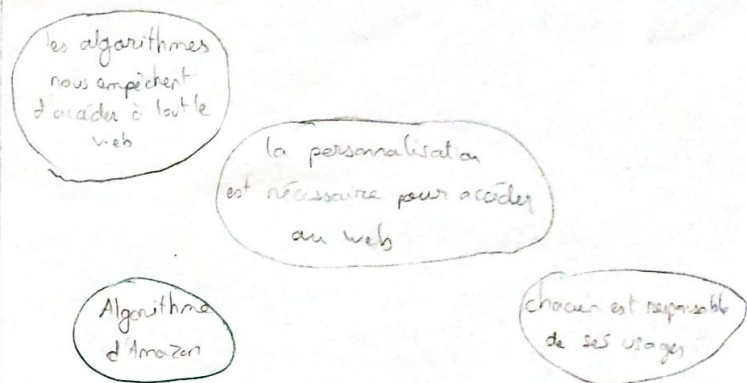 les algorithmes
nous empêchent
d'accéder à tout le
web
la personnalisation
est nécessaire pour accéder
au web
Algorithme
d'Amazon
chacun est responsable
de ses usages